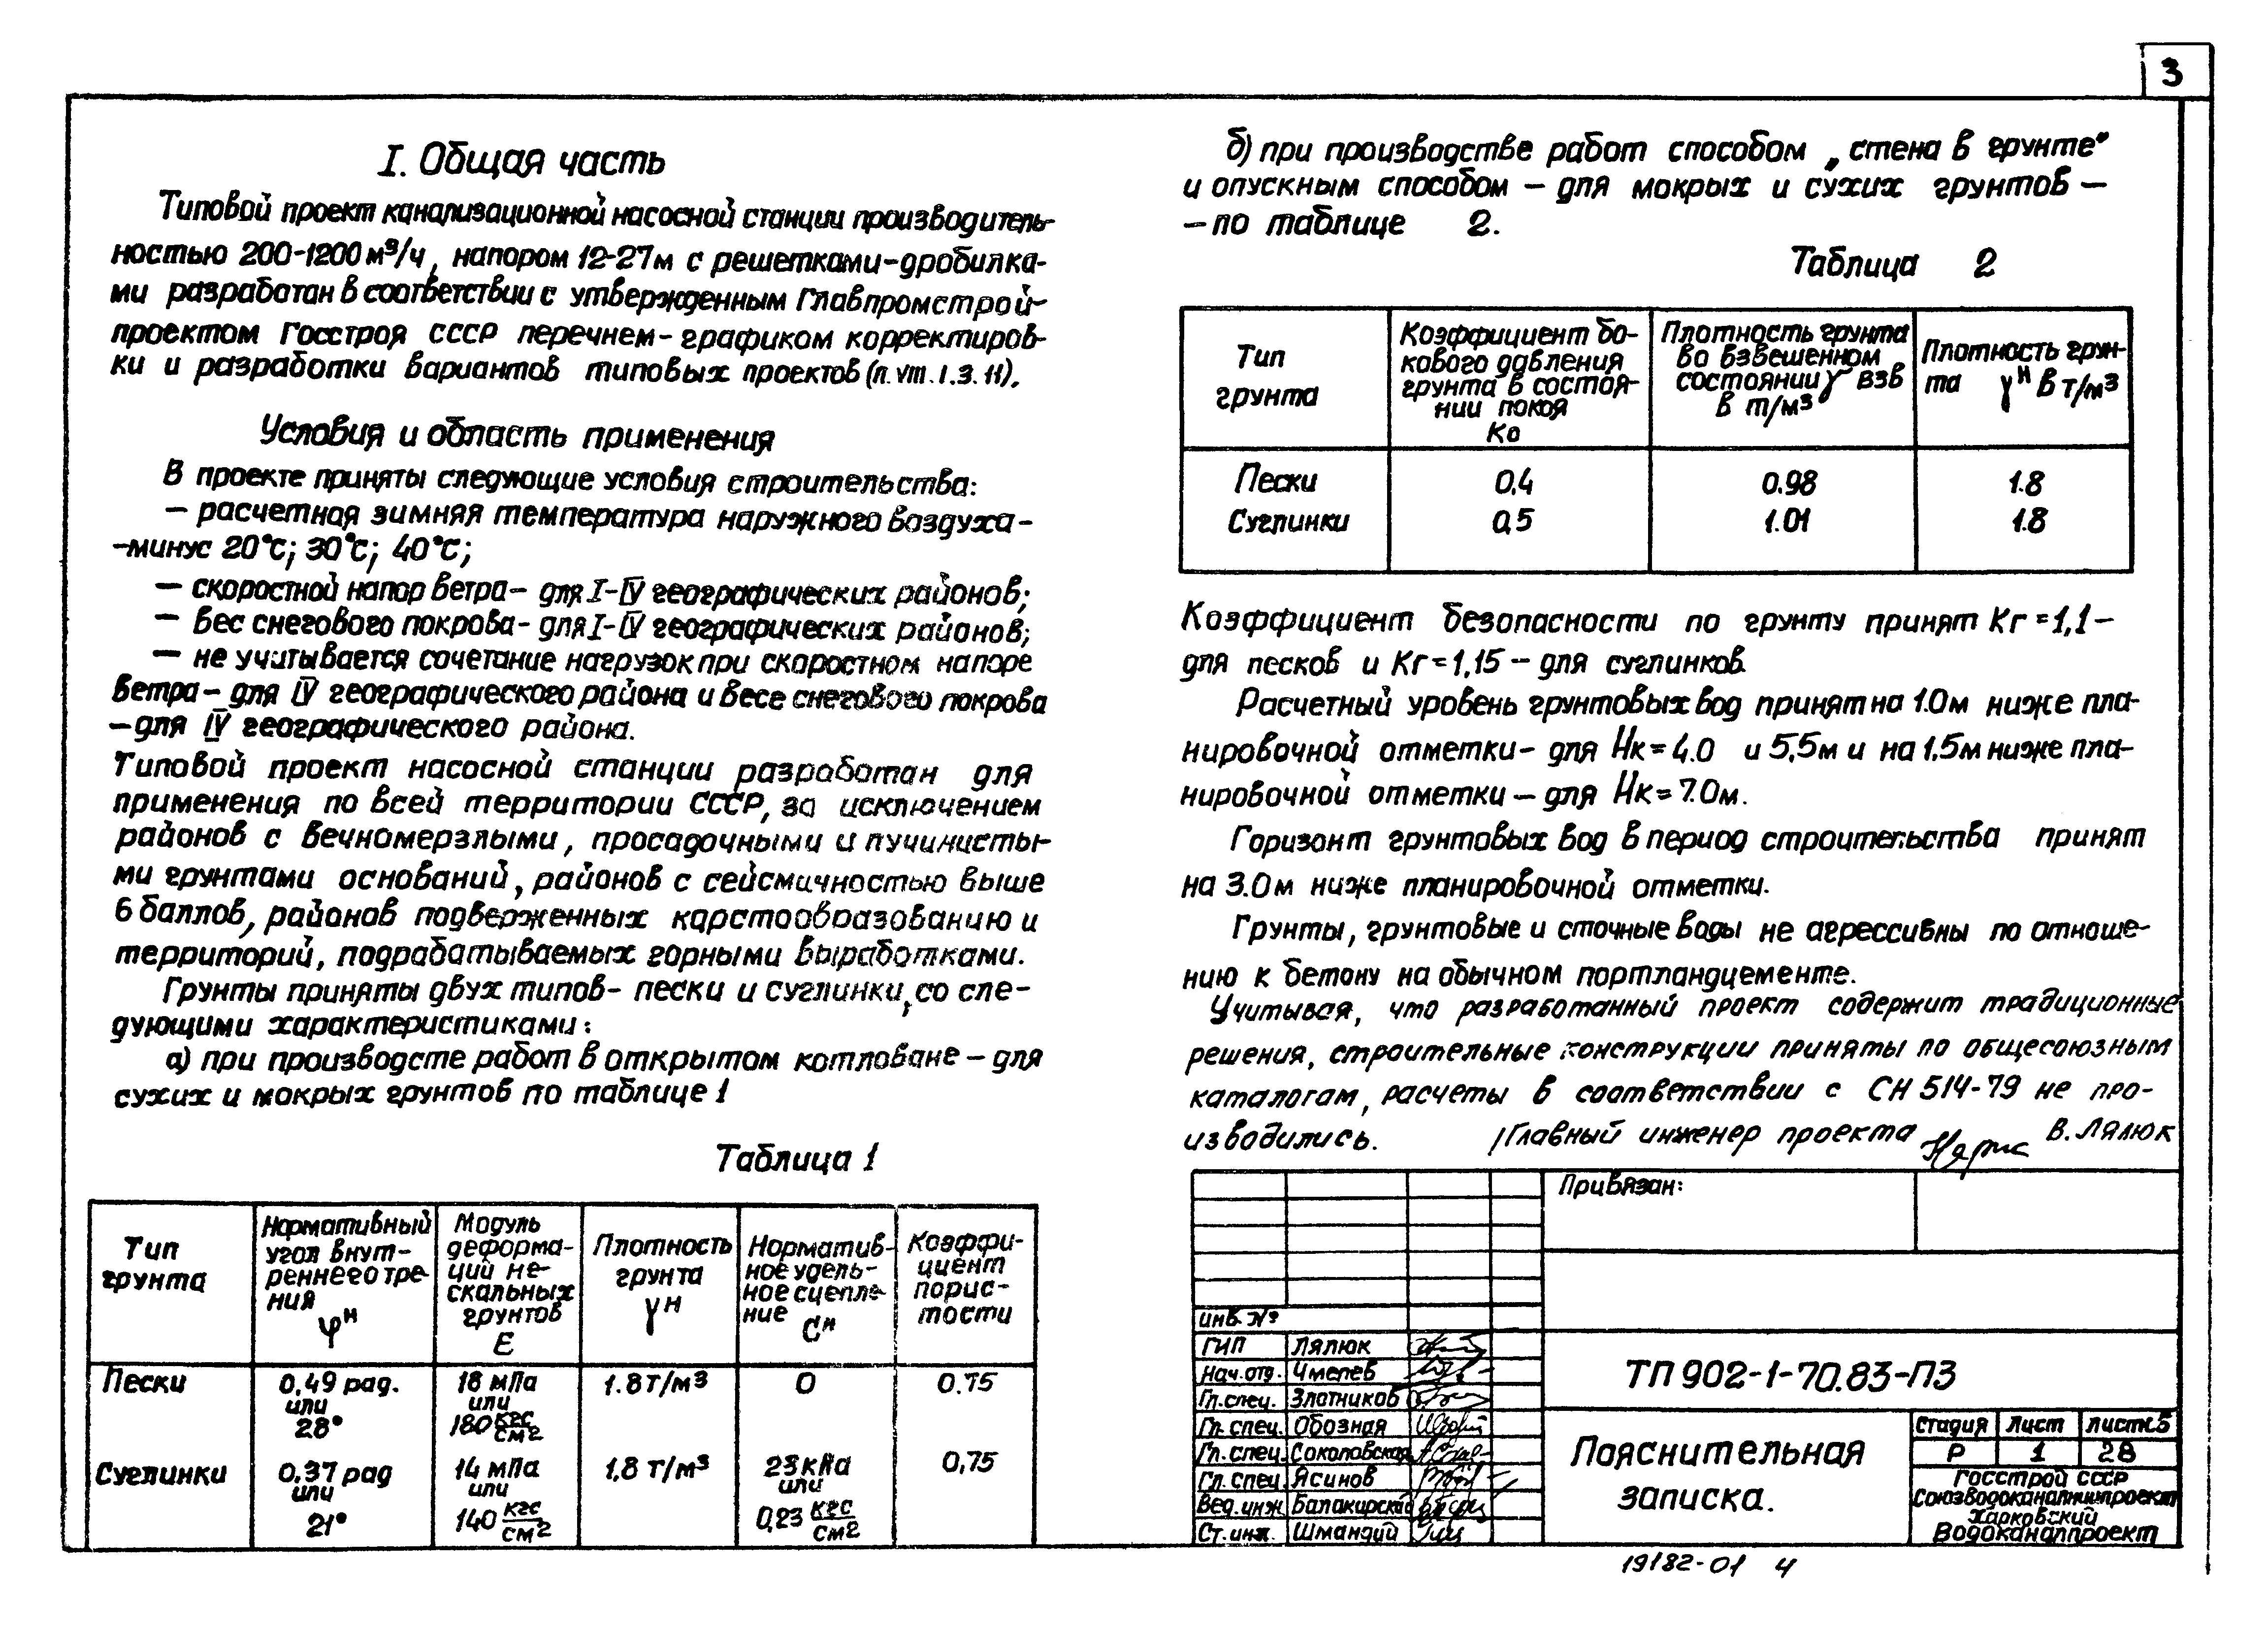 3
I. Общая часть
Типовой проект канализационной насосной станции производитель-
ностью 200-1200 м³/ч, напором 12-27м с решетками-дробилка-
ми разработан в соответствии с утвержденным Главпромстрой-
проектом Госстроя СССР перечнем-графиком корректиров-
ки и разработки вариантов типовых проектов (п. VIII. 1. 3. 11).
Условия и область применения
В проекте приняты следующие условия строительства:
— расчетная зимняя температура наружного воздуха-
-минус 20°С; 30°С; 40°С;
— скоростной напор ветра- для I-IV географических районов;
— вес снегового покрова- для I-IV географических районов;
— не учитывается сочетание нагрузок при скоростном напоре
ветра- для IV географического района и весе снегового покрова
-для IV географического района.
Типовой проект насосной станции разработан для
применения по всей территории СССР, за исключением
районов с вечномерзлыми, просадочными и пучинисты-
ми грунтами оснований, районов с сейсмичностью выше
6 баллов, районов подверженных карстообразованию и
территорий, подрабатываемых горными выработками.
Грунты приняты двух типов- пески и суглинки, со сле-
дующими характеристиками:
а) при производсте работ в открытом котловане - для
сухих и мокрых грунтов по таблице 1
Таблица 1
Тип грунта
Нормативный угол внут-реннего тре-ния φн
Модуль деформа-ций не-скальных грунтов Е
Плотность грунта γн
Норматив-ное удель-ное сцепле-ние Сн
Коэффи-циент порис-тости
Пески 0.49 рад. или 28° 18 мПа или 180 кгс/см2 1.8 т/м3 0 0.75
Суглинки 0.37 рад или 21° 14 мПа или 140 кгс/см2 1.8 т/м3 23 кПа или 0,23 кгс/см2 0,75
б) при производстве работ способом „стена в грунте"
и опускным способом - для мокрых и сухих грунтов —
-по таблице 2.
Таблица 2
Тип грунта
Коэффициент бо-кового давления грунта в состоя-нии покоя Ко
Плотность грунта во взвешенном состоянии γ взв в т/м3
Плотность грун-та γн в т/м3
Пески 0.4 0.98 1.8
Суглинки 0,5 1.01 1.8
Коэффициент безопасности по грунту принят Кг=1,1-
для песков и Кг=1,15 - для суглинков.
Расчетный уровень грунтовых вод принят на 1.0м ниже пла-
нировочной отметки- для Нк=4.0 и 5,5м и на 1,5м ниже пла-
нировочной отметки - для Нк=7.0м.
Горизонт грунтовых вод в период строительства принят
на 3.0м ниже планировочной отметки.
Грунты, грунтовые и сточные воды не агрессивны по отноше-
нию к бетону на обычном портландцементе.
Учитывая, что разработанный проект содержит традиционные
решения, строительные конструкции приняты по общесоюзным
каталогам, расчеты в соответствии с СН 514-79 не про-
изводились. Главный инженер проекта В. Лялюк
Привязан:
инв. №
ГИП Лялюк
Нач. отд. Чмелев
Гл. спец. Златников
Гл. спец. Обозная
Гл. спец. Соколовская
Гл. спец. Ясинов
Вед. инж. Балакирский
Ст. инж. Шмандий
ТП 902-1-70.83-ПЗ
Пояснительная
записка.
Стадия Лист Листов
Р 1 28
Госстрой СССР
Союзводоканалниипроект
Харьковский
Водоканалпроект
19182-01 4